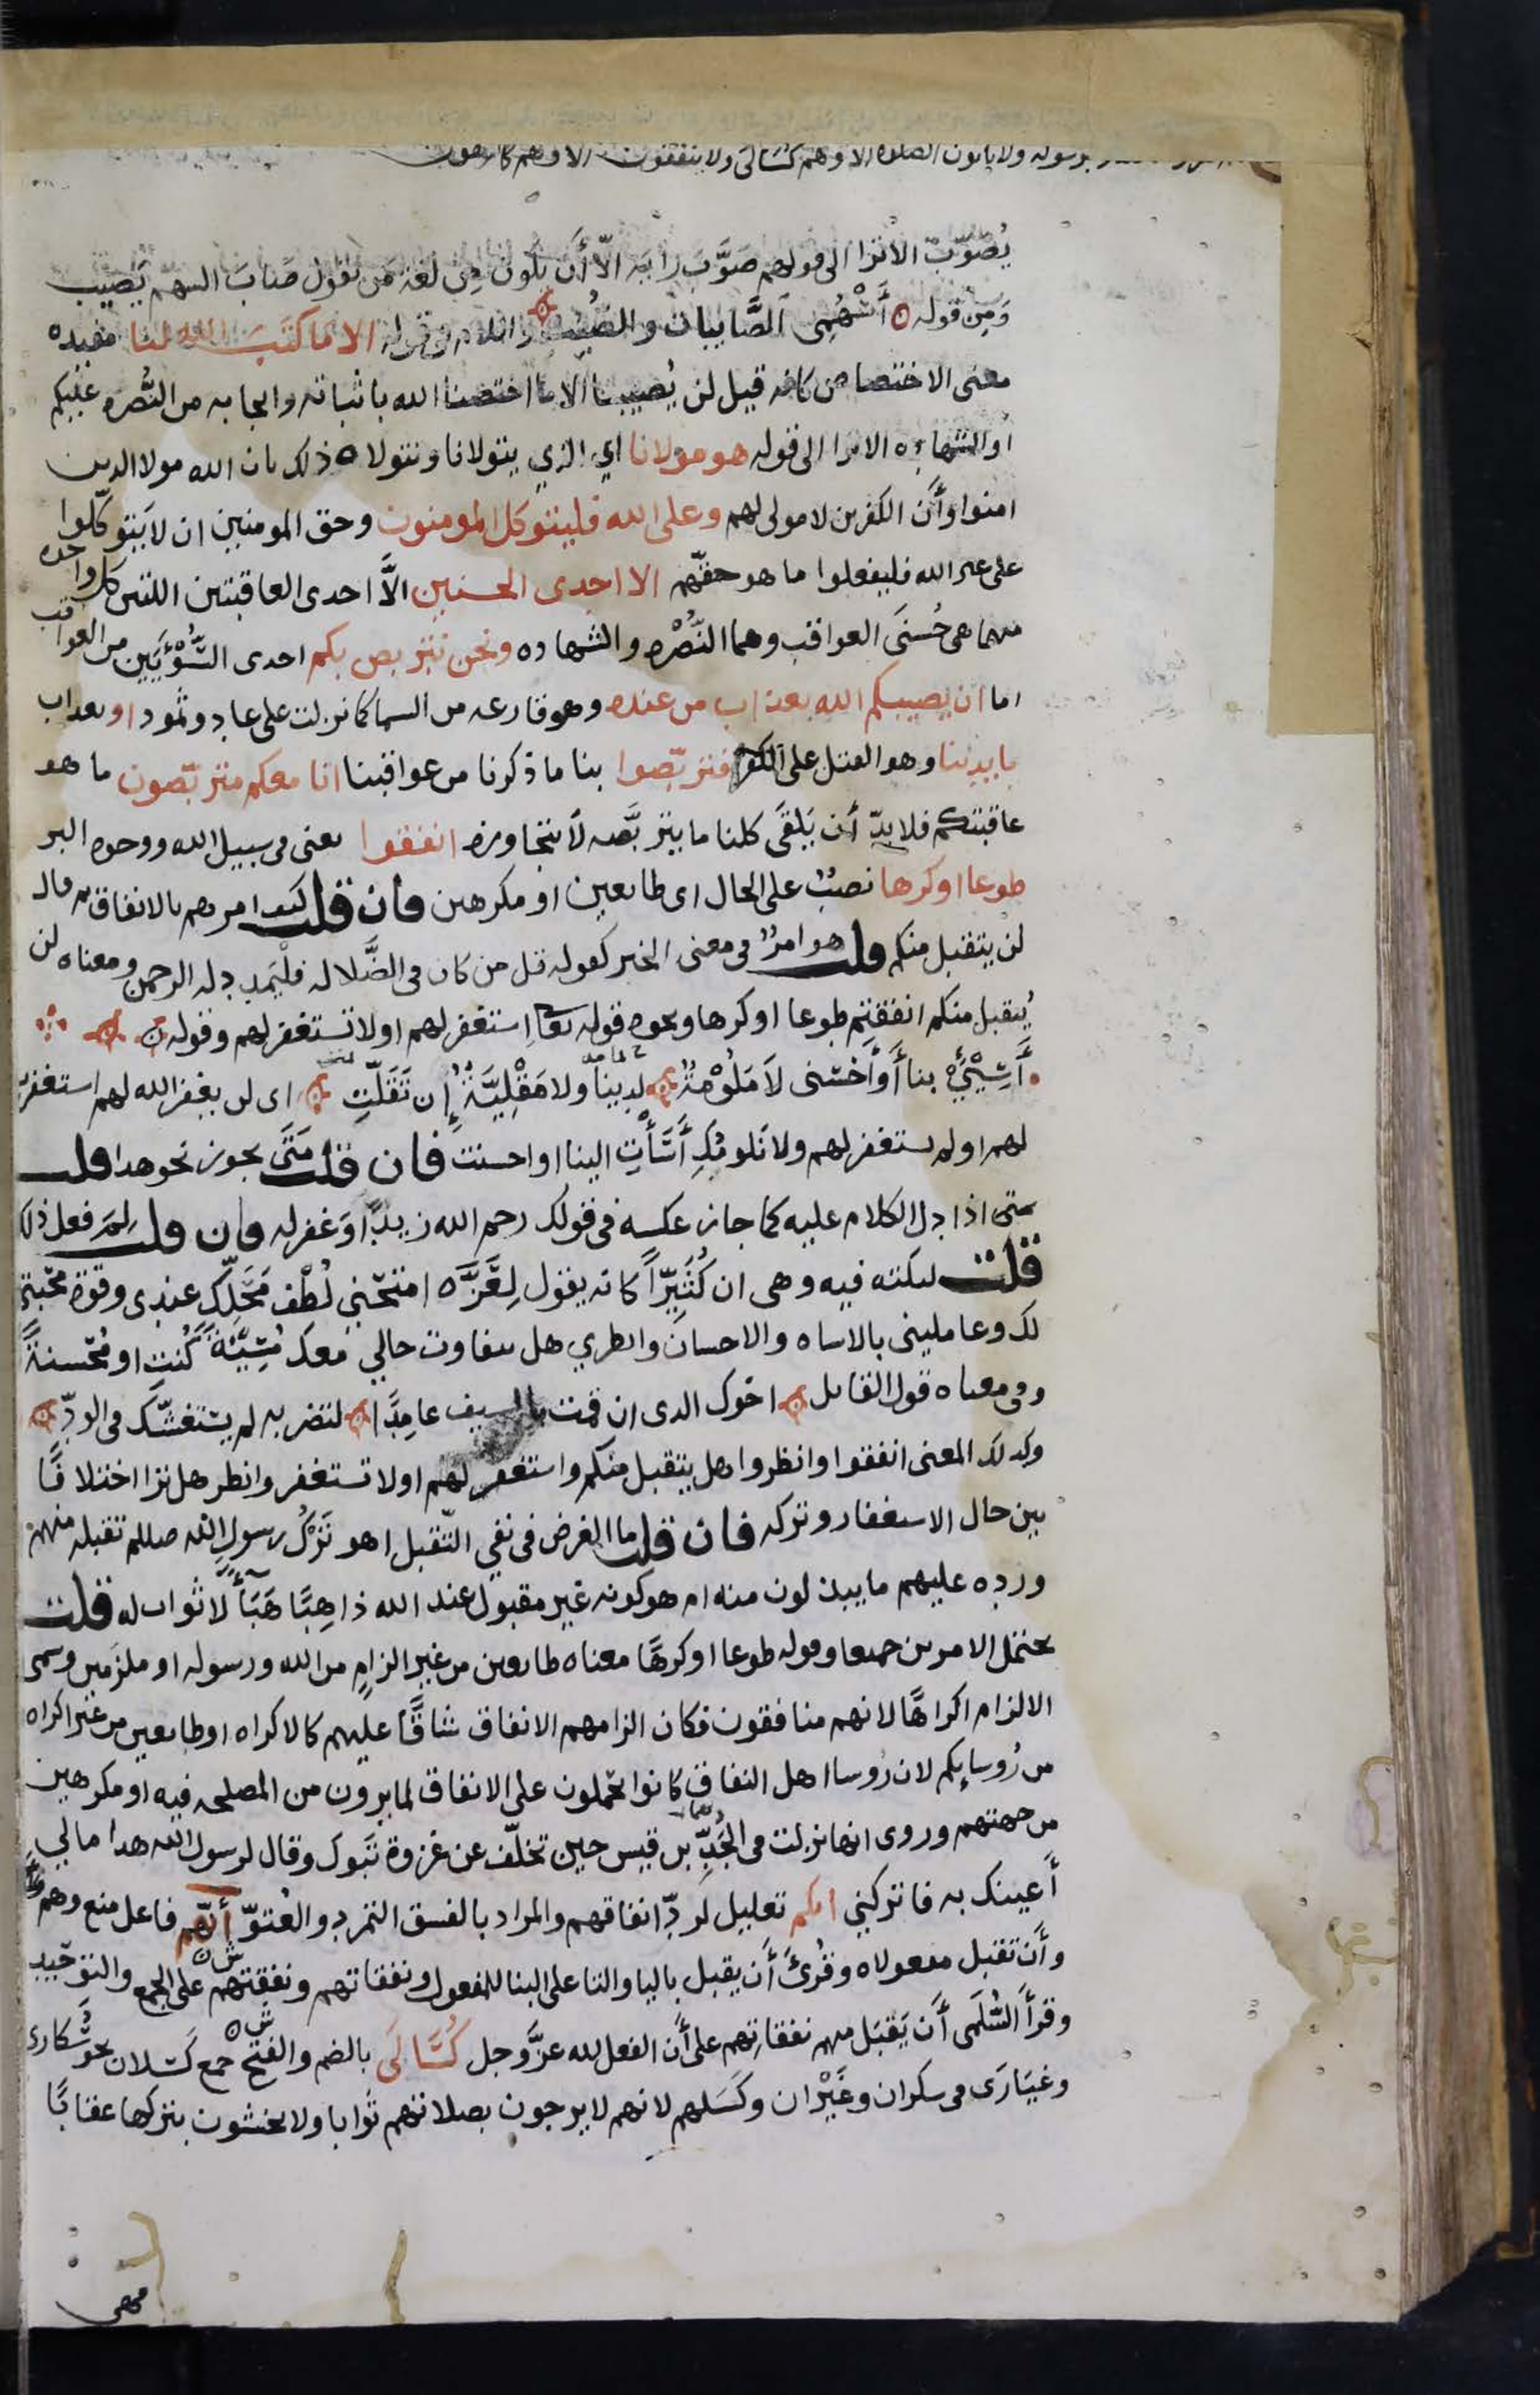 برسوله ولا ياتون الصلوه الا وهم كسالى ولا ينفقون الا وهم كارهون
يُصَوّبُ الا ترا الى قولهم صَوَّبَ رأيه الّا أَن يكون من لغة من يقول صَابَ السهم يَصيب
وَمِن قوله أَسْهُمِى الصَّايبات والصُيُب واللام فى قوله الا ما كتَبَ الله لنا مفيده
معنى الاختصاص كانه قيل لن يُصيبنا الا ما اختصنا الله باثباته وايجابه من النُّصره عليكم
او الشهاده الا ترا الى قوله هو مولانا اي الذي يتولانا ونتولاه ذلك بان الله مولا الدين
امنوا وأَن الكفرىن لا مولى لهم وعلى الله فليتوكل المومنون وحق المومنين ان لا يَتوكّلوا
على عىر الله فليفعلوا ما هو حقّهم الا احدى الحسنيين الاَّ احدى العاقبتين اللتىن كل واحده
منهما هى حُسنَى العواقب وهما النُّصْره والشهاده ونحن نتربص بكم احدى السُّوْءَيَين من العواقب
اما ان يصيبكم الله بعذاب من عنده وهو قارعه من السما كما نزلت على عاد وثمود او بعداب
بايدينا وهو القتل على الكفر فتربّصوا بنا ما ذكرنا من عواقبنا انا معكم متربّصون ما هو
عاقبتكم فلا بدّ أن يَلقَى كلنا ما يتربَّصه لا يتجاوزه انفقوا يعنى فى سبيل الله ووجوه البر
طوعا او كرها نصبٌ على الحال اى طايعين او مكرهين فان قلت كيف امرهم بالانفاق ثم قال
لن يتقبل منكم قلت هو امرٌ فى معنى الخبر كقوله قل من كان فى الضَّلاله فلْيَمدد له الرحمن ومعناه لن
يُتقبل منكم انفقتم طوعا او كرها ونحوه قوله تعا استغفر لهم او لا تستغفر لهم وقوله
أَسِيْئِي بنا أَوأَحْسنى لاَ مَلُوْمةٌ لدينا ولا مَقْلِيَّةٌ إِن تَقَلّتِ اى لن يغفر الله لهم استغفرت
لهم او لم ىستغفر لهم ولا نلومُكِ أَسَأْتِ الينا او احسنت فان قلت مَتَى يجوز نحو هدا قلت
متى اذا دل الكلام عليه كما جاز عكسه فى قولك رحم الله زيدًا وغفر له فان قلت لِمَ فعل ذلك
قلت لنكته فيه وهى ان كُثَيِرّاً كانه يقول لِعَزَّه امتحّنى لُطْف مَحَلّك عندى وقوة محبّتى
لك وعاملينى بالاساه والاحسان وانطري هل ىتفاوت حالي معكِ مُسِيْئَةً كُنتِ او مُحْسنةً
وفى معناه قول القايل اخوك الدى ان قمت بالسيف عامِدًا لتضربه لم يستغشّك فى الودّ
وكدلك المعنى انفقوا وانظروا هل يتقبل منكم واستغفر لهم او لا تستغفر وانظر هل ترا اختلافًا
بين حال الاستغفار وتركه فان قلت ما الغرض فى نفى التّقبل اهو تَرْكُ رسول الله صللم تقبله منهم
وردِه عليهم ما يبدلون منه ام هو كونه غير مقبول عند الله ذاهِبًا هَبَأً لا ثواب له قلت
يحتمل الامرىن حميعا وقوله طوعا او كرهًا معناه طايعىن من غير الزامٍ من الله ورسوله او ملزمين وسمى
الالزام اكراهًا لانهم منافقون فكان الزامهم الانفاق شاقًا عليهم كالاكراه او طايعين من غير اكراه
من رُوسايِكم لان رُوسا اهل النفاق كانوا يحملون على الانفاق لما يرون من المصلحه فيه او مكرهين
من جهتهم وروى انها نزلت فى الجَدِّ بن قيس حين تخلّف عن غزوة تَبوك وقال لرسول الله هدا مالي
أعينك به فاتركنِي انكم تعليل لردّ انفاقهم والمراد بالفسق التمرد والعُتوّ أنهّم فاعل منع وهم
وأَن تقبل مفعولاه وقُرِىَ أَن يقبل باليا والتا على البنا للمفعول ونفقاتهم ونفقتهم على الجمع والتوحيد
وقرأ السُّلَمى أَن يَقبَل منهم نفقاتِهم على أَن الفعل لله عزَّ وجل كُسَالَى بالضم والفتح جمع كَسلان نحو سُكارى
وغيَارَى فى سكران وغَيْران وكَسَلهم لانهم لا يرجون بصلاتهم ثوابا ولا يخشون بتركها عقابًا
فهى